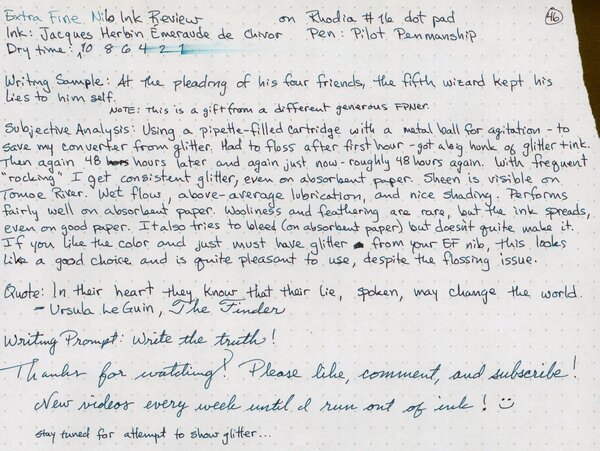 Extra Fine Nib Ink Review on Rhodia #16 dot pad 46
Ink: Jacques Herbin Emeraude de Chivor Pen: Pilot Penmanship
Dry time: 10 8 6 4 2 1
Writing Sample: At the pleading of his four friends, the fifth wizard kept his
lies to him self.
NOTE: This is a gift from a different generous FPNer.
Subjective Analysis: Using a pipette-filled cartridge with a metal ball for agitation - to
save my converter from glitter. Had to floss after first hour - got a big honk of glitter + ink.
Then again 48 hours later and again just now - roughly 48 hours again. With frequent
"rocking" I get consistent glitter, even on absorbent paper. Sheen is visible on
Tomoe River. Wet flow, above-average lubrication, and nice shading. Performs
fairly well on absorbent paper. Wooliness and feathering are rare, but the ink spreads,
even on good paper. It also tries to bleed (on absorbent paper) but doesn't quite make it.
If you like the color and just must have glitter from your EF nib, this looks
like a good choice and is quite pleasant to use, despite the flossing issue.
Quote: In their heart they know that their lie, spoken, may change the world.
- Ursula LeGuin, The Finder
Writing Prompt: Write the truth!
Thanks for watching! Please like, comment, and subscribe!
New videos every week until I run out of ink! ☺
stay tuned for attempt to show glitter...